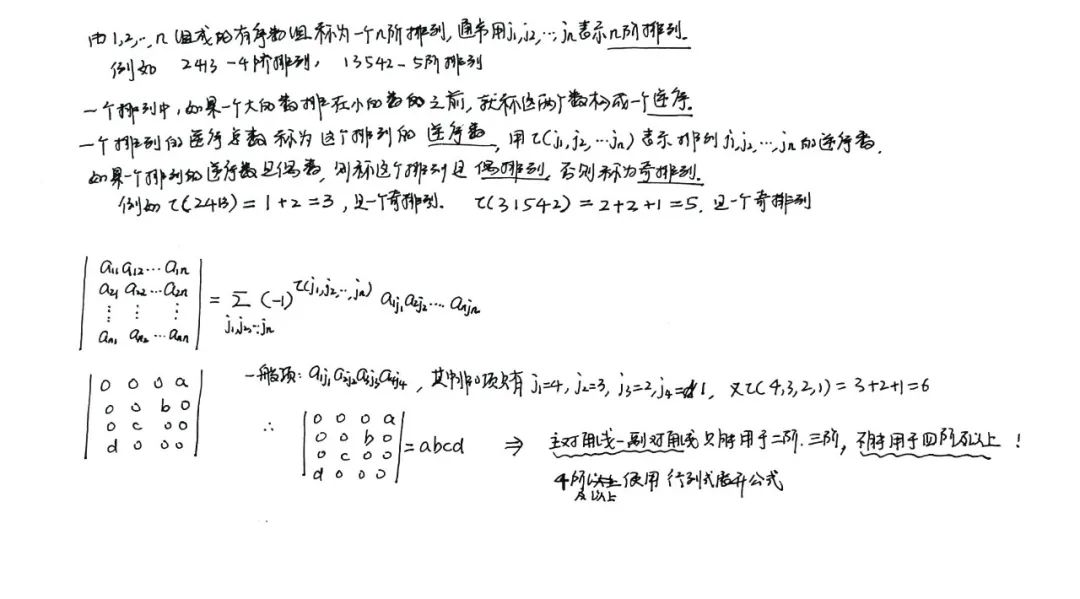 由1,2,…,n组成的有序数组称为一个n阶排列,通常用j₁,j₂,…,jₙ表示n阶排列.
例如 2413-4阶排列, 13542-5阶排列
一个排列中,如果一个大的数排在小的数的之前,就称这两个数构成一个逆序.
一个排列的逆序总数称为这个排列的逆序数,用τ(j₁,j₂,…jₙ)表示排列j₁,j₂,…,jₙ的逆序数.
如果一个排列的逆序数是偶数,则称这个排列是偶排列,否则称为奇排列.
例如τ(2413)=1+2=3,是一个奇排列. τ(31542)=2+2+1=5.是一个奇排列
|a₁₁ a₁₂ … a₁ₙ|
|a₂₁ a₂₂ … a₂ₙ|
|⋮ ⋮ ⋮| = Σ (-1)^τ(j₁,j₂,…,jₙ) a₁j₁a₂j₂…aₙjₙ
j₁,j₂…jₙ
|aₙ₁ aₙ₂ … aₙₙ|
|0 0 0 a|
|0 0 b 0|
|0 c 0 0|
|d 0 0 0|
一般项: a₁j₁a₂j₂a₃j₃a₄j₄, 其中非0项只有j₁=4, j₂=3, j₃=2, j₄=1, 又τ(4,3,2,1)=3+2+1=6
∴
|0 0 0 a|
|0 0 b 0|
|0 c 0 0| =abcd ⇒ 主对角线-副对角线只适用于二阶.三阶, 不适用于四阶及以上!
|d 0 0 0|
4阶及以上使用行列式展开公式